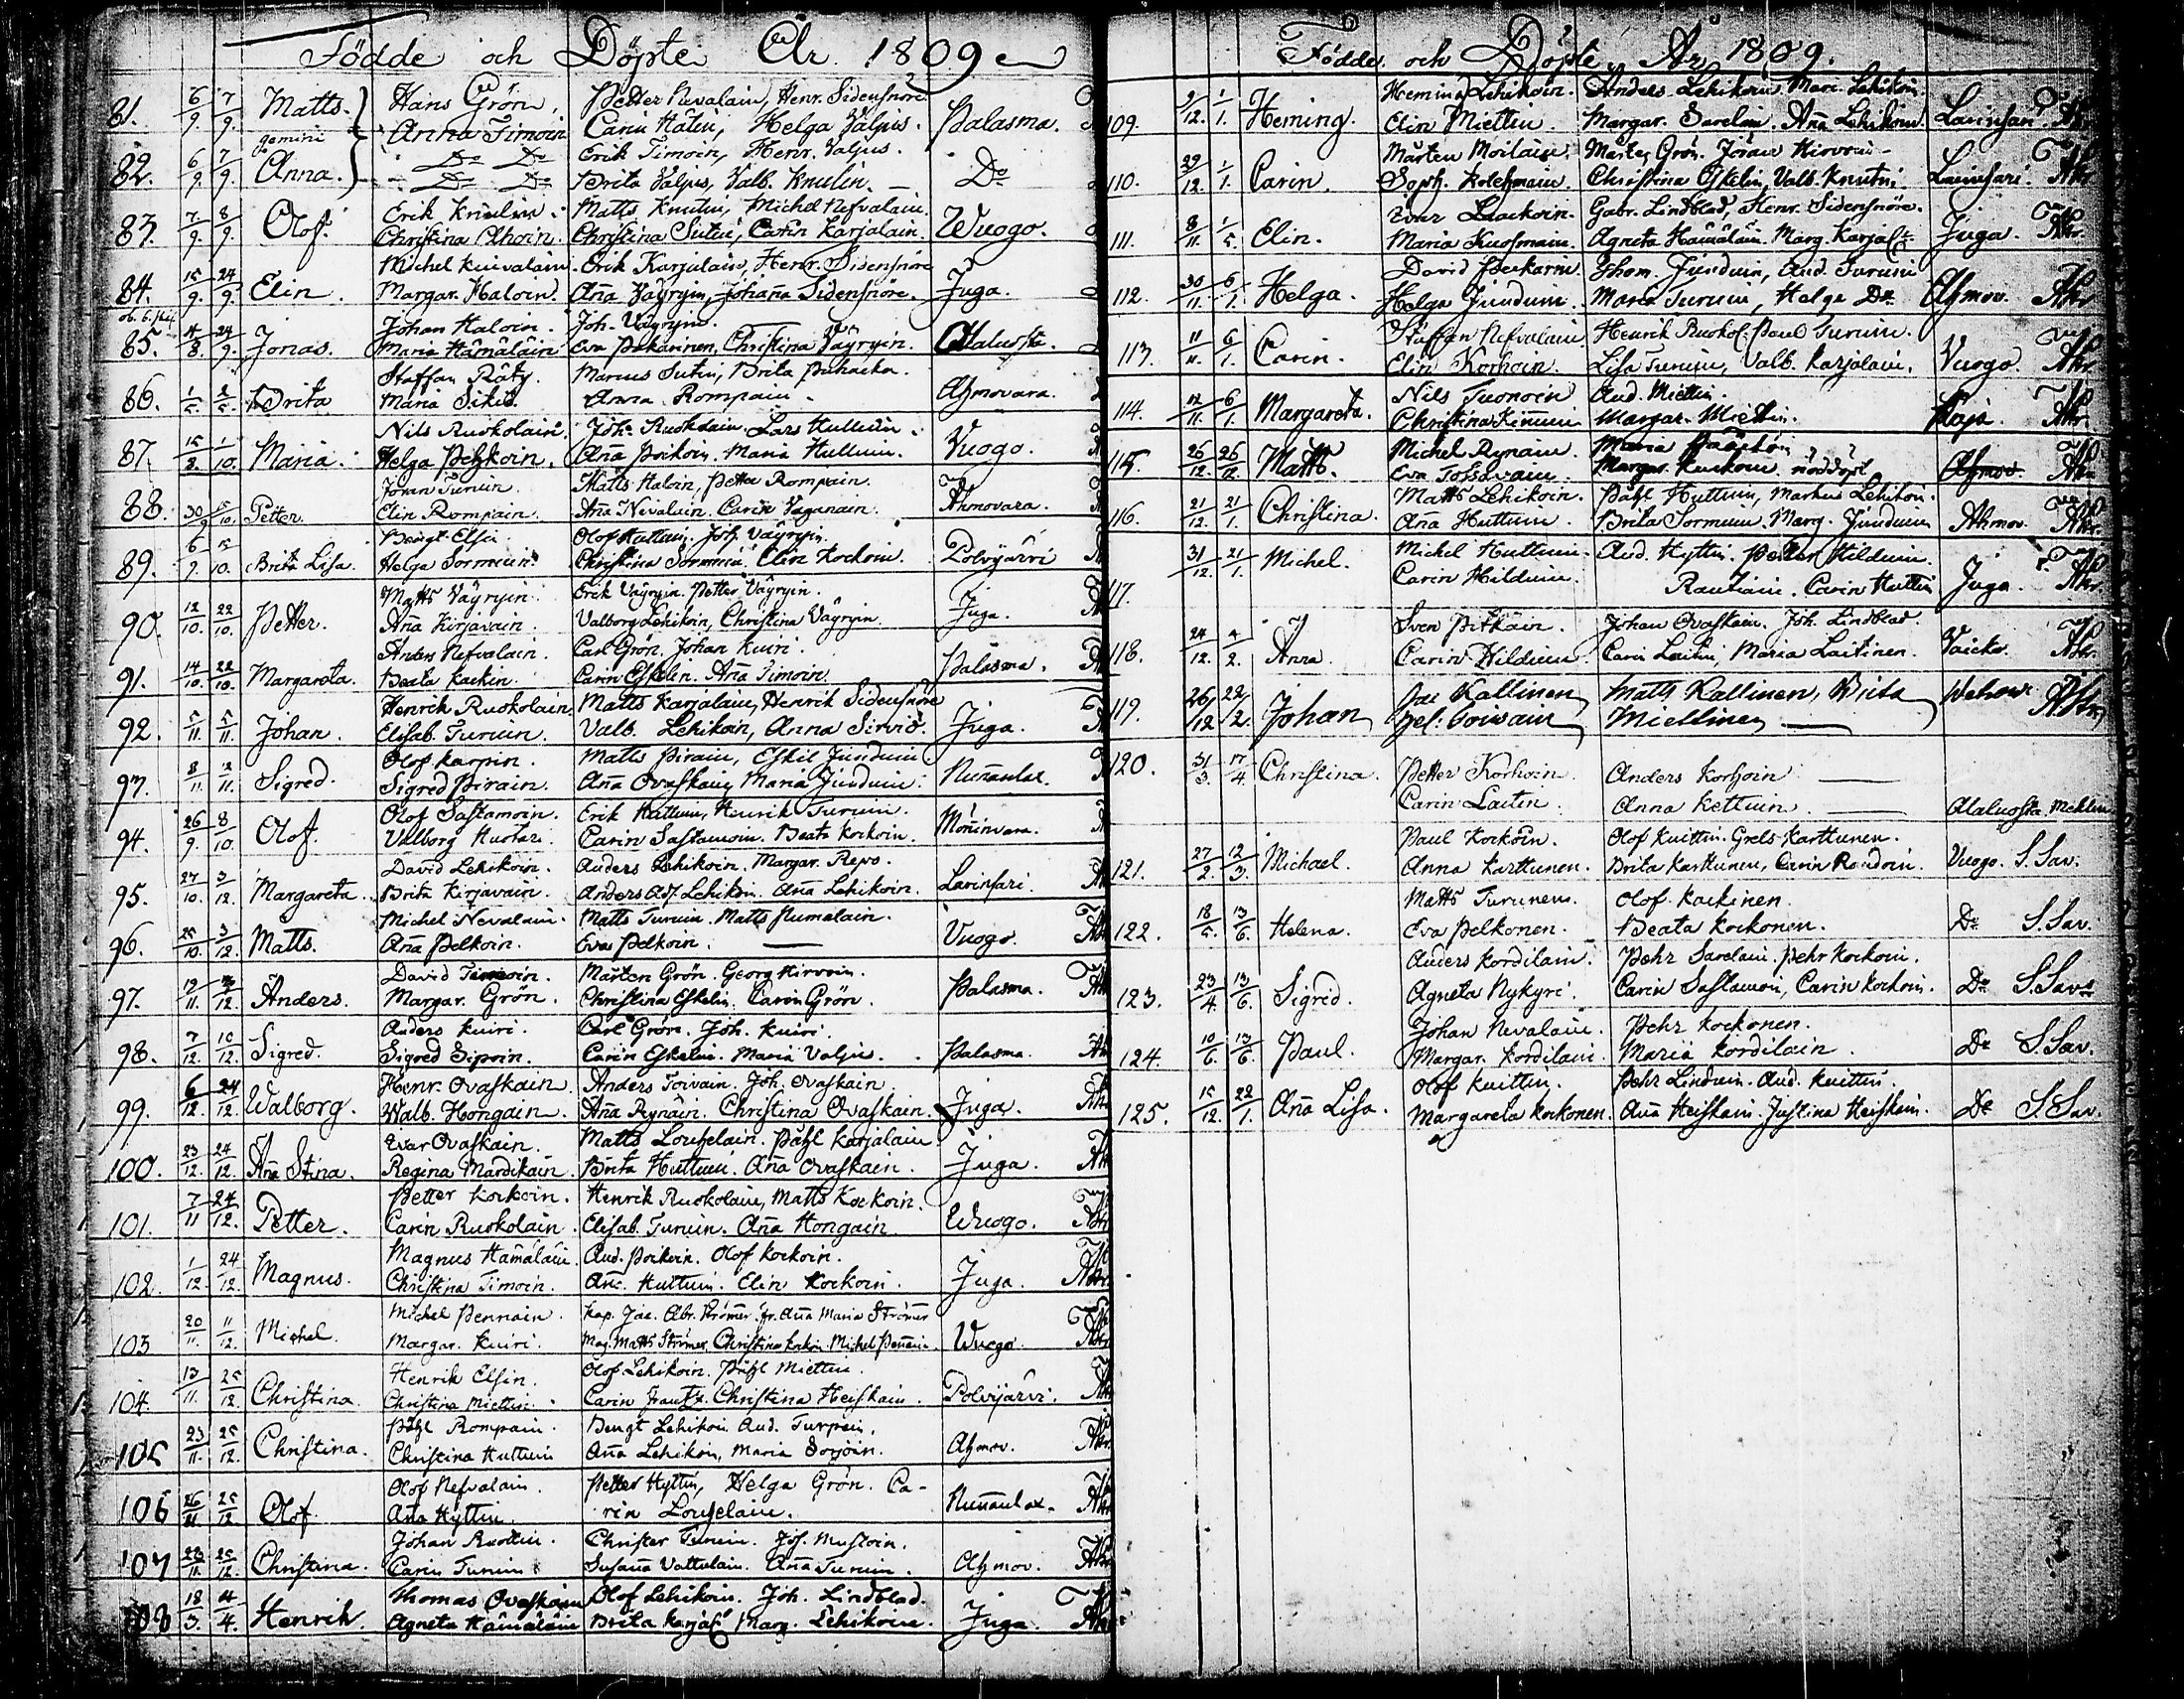 Födde och Döpte År 1809
81. 6/9. 7/9. Matts. Hans Grön, Petter Nevalain, Henr. Sidensnöre
gemini Anna Timoin Carin Halin, Helga Valjus. Palasma.
82. 6/9. 7/9. Anna. Do Do Erik Timoin, Henr. Valjus.
Do Do Brita Valjus, Valb. Knutin. Do
83. 7/9. 8/9. Olof. Erik Knutin. Matts Knutin, Michel Nefvalain.
Christina Ahoin. Christina Sutin, Carin Karjalain. Wuogo.
84. 15/9. 24/9. Elin. Michel Kuivalain. Erik Karjalain, Henr. Sidensnöre
Margar. Haloin. Aña Väyryin, Johaña Sidensnöre. Juga.
85. 14/8. 24/9. Jonas. Johan Haloin. Joh. Väyryin.
Maria Hämäläin Eva Pakarinen, Christina Väyryin. Alaluosta.
86. 1/5. 2/5. Brita Staffan Räty. Marcus Sutin, Brita Puhacka.
Maria Sikiö. Anna Rompain. Ahmovara.
87. 15/8. 1/10. Maria. Nils Ruokolain. Joh. Ruokolain. Lars Hulluin.
Helga Pelkoin. Aña Poikoin. Maria Hulluin. Vuogo.
88. 30/9 15/10. Petter. Jöran Turuin. Matts Haloin, Petter Rompain.
Elin Rompain. Aña Nevalain. Carin Vaganain. Ahmovara.
89. 6/9. 15/10. Brita Lisa. Bengt Elsin. Olof Huttuin. Joh. Väyryin.
Helga Sormuin. Christina Sormuin. Elin Kockoin. Polvijärvi
90. 12/10. 22/10. Petter. Matts Väyryin. Erik Väyryin. Petter Väyryin.
Aña Kirjavain. Valborg Lehikoin, Christina Väyryin. Juga.
91. 14/10. 22/10. Margareta. Anders Nefvalain. Carl Grön. Johan Kuiri.
Beata Kaikin. Carin Eskelin. Aña Timoin. Palasma.
92. 5/11. 5/11. Johan. Henrik Ruokolain. Matts Karjalain, Henrik Sidensnöre
Elisab. Turuin. Valb. Lehikoin, Anna Sirviö. Juga.
93. 8/11. 12/11. Sigred. Olof Karpin. Matts Pirain, Eskil Junduin.
Sigred Pirain. Aña Ovaskain, Maria Junduin. Nuñanlax.
94. 26/9. 8/10. Olof. Olof Sastamoin. Erik Huttuin, Henrik Turuin.
Valborg Huotari. Carin Sastamoin. Beata Kockoin. Moñinvara.
95. 27/10. 3/12. Margareta. David Lehikoin. Anders Lehikoin. Margar. Repo.
Brita Kirjavain. Anders Lehikoin. Aña Lehikoin. Larinsari.
96. 25/10. 3/12. Matts. Michel Nevalain. Matts Turuin. Matts Numalain.
Aña Pelkoin. Eva Pelkoin. Vuogo.
97. 19/11. /12. Anders. David Timoin. Mårten Grön. Georg Hirvoin.
Margar. Grön. Christina Eskelin. Carin Grön. Palasma.
98. 7/12. 10/12. Sigred. Anders Kuiri. Carl Grön. Joh. Kuiri.
Sigred Sipoin. Carin Eskelin. Maria Valjus. Palasma.
99. 6/12. 24/12. Walborg. Henr. Ovaskain. Anders Toivain. Joh. Ovaskain.
Walb. Hongain. Aña Rynäin. Christina Ovaskain. Juga.
100. 23/12. 24/12. Aña Stina. Evar Ovaskain. Matts Louhelain. Påhl Karjalain.
Regina Mardikain. Brita Huttuin. Aña Ovaskain. Juga.
101. 7/11 24/12. Petter. Petter Kockoin. Henrik Ruokolain, Matts Kockoin.
Carin Ruokolain. Elisab. Turuin. Aña Hongain. Wuogo.
102. 1/12. 24/12. Magnus. Magnus Hämäläin. And. Poikoin. Olof Kockoin.
Christina Timoin. Añ. Huttuin. Elin Kockoin. Juga.
103 20/11. 11/12. Michel. Michel Pennain. Kap. Jac. Abr. Strömer. fr. Aña Maria Strömer
Margar. Kuiri. Mag. Matts Strömer. Christina Kockoin. Michel Peñain. Wuogo.
104. 13/11. 25/12. Christina. Henrik Elsin. Olof Lehikoin. Påhl Miettin.
Christina Miettin. Carin Frantz. Christina Heiskain. Polvijärvi.
105 23/11. 25/12. Christina. Påhl Rompain. Bengt Lehikoin. And. Turpein.
Christina Huttuin Aña Lehikoin, Maria Sorjoin. Ahmov.
106 26/11. 25/12. Olof. Olof Nefvalain. Petter Hyttin, Helga Grön. Ca-
Aña Hyttin. rin Louhelain. Nuñanlax.
107 23/11. 25/12. Christina. Johan Ruottin. Christer Turuin. Joh. Mustoin.
Carin Turuin. Susaña Vattulain. Aña Turuin. Ahmov.
108 18/3. 4/4. Henrik. Thomas Ovaskain Olof Lehikoin. Joh. Lindblad.
Agneta Hämäläin Brita Karjal. Marg. Lehikoin. Juga.
Födde och Döpte År 1809.
109. 9/12. 1/1. Heming. Heming Lehikoin. Anders Lehikoin, Mari. Lehikoin
Elin Miettin. Margar. Savelain. Aña Lehikoin. Larinsari.
110. 29/12. 1/1. Carin. Mårten Moilain. Mårten Grön. Jöran Hirvoin
Soph. Kolehmain. Christina Eskelin, Valb. Knutin. Larinsari.
111. 8/11. 1/5. Elin. Evar Laackoin. Gabr. Lindblad, Henr. Sidensnöre.
Maria Kuosmain. Agneta Hämäläin. Marg. Karjal. Juga.
112. 30/11. 6/1. Helga. David Peckarin. Thom. Junduin, And. Turuin
Helga Junduin. Maria Turuin, Helga Do. Ahmov.
113. 11/11. 6/1. Carin. Staffan Nefvalain. Henrik Ruokol. Paul Turuin.
Elin Korhoin. Lisa Turuin, Valb. Karjalain. Vuogo.
114. 12/11. 6/1. Margareta. Nils Tuonoin And. Miettin.
Christina Kinnuin Margar. Miettin. Koja.
115. 26/12. 26/12. Matts. Michel Rynäin. Maria Pääskön
Eva Tossavain. Margar. Kuckoin. nöddöpt Ahmov.
116. 21/12. 21/1. Christina. Matts Lehikoin. Påhl Huttuin, Markus Lehikoin.
Aña Huttuin. Brita Sormuin. Marg. Junduin Ahmov.
117. 31/12. 21/1. Michel. Michel Huttuin. And. Hyttin. Petter Hilduin.
Carin Hilduin. Rautiain. Carin Huttuin Juga.
118. 24/12. 4/2. Anna. Sven Pitkäin. Johan Ovaskain. Joh. Lindblad.
Carin Hilduin. Carin Laitin, Maria Laitinen. Vaicko.
119. 26/12 22/2. Johan Jac Kallinen Matts Kallinen, Brita
Hel: Toivain Miettinen Wehow.
120. 31/3. 17/4. Christina. Petter Korhoin. Anders Korhoin
Carin Laitin. Anna Kettuin. Alaluosta. Mehlin
121. 27/2. 12/3. Michael. Paul Kockoin. Olof Kuittin. Grels Karttunen.
Anna Karttunen. Brita Karttunen, Carin Raudoin. Vuogo. S. Sav.
122. 18/5. 13/6. Helena. Matts Turunen. Olof Kaikinen.
Eva Pelkonen. Beata Kockonen. Do S. Sav.
123. 23/4. 13/6. Sigred. Anders Kordilain. Pehr Savelain. Pehr Kockoin.
Agneta Nykyri. Carin Sastamoin, Carin Kockoin. Do S. Sav.
124. 10/6. 13/6. Paul. Johan Nevalain. Pehr Kockonen.
Margar. Kordilain. Maria Kordilain. Do S. Sav.
125. 15/12. 22/1. Aña Lisa. Olof Kuittin. Pehr Linduin. And. Kuittin.
Margareta Kockonen. Aña Heiskain. Justina Heiskain. Do S. Sav.